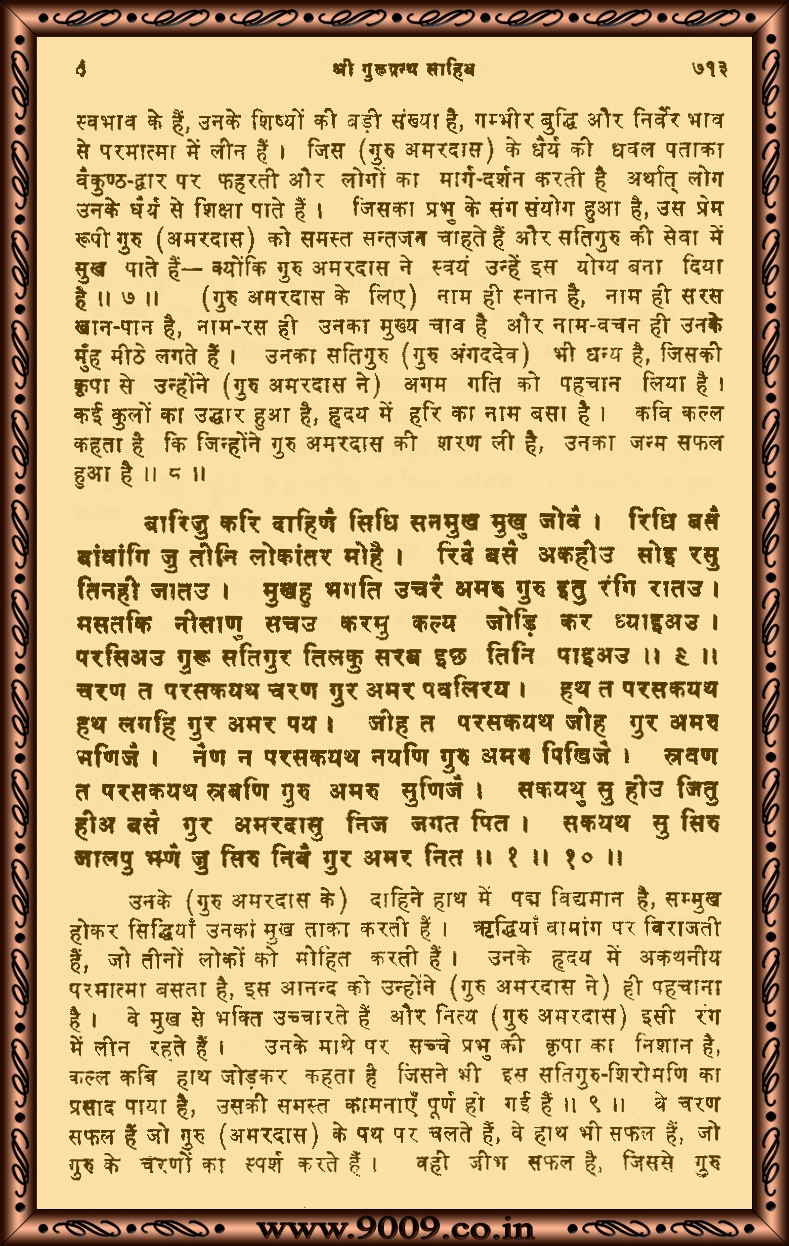 4 श्री गुरूग्रन्थ साहिब ७१३
स्वभाव के हैं, उनके शिष्यों की बड़ी संख्या है, गम्भीर बुद्धि और निर्वैर भाव
से परमात्मा में लीन हैं । जिस (गुरु अमरदास) के धैर्य की धवल पताका
वैकुण्ठ-द्वार पर फहरती और लोगों का मार्ग-दर्शन करती है अर्थात् लोग
उनके धैर्य से शिक्षा पाते हैं । जिसका प्रभु के संग संयोग हुआ है, उस प्रेम
रूपी गुरु (अमरदास) को समस्त सन्तजन चाहते हैं और सतिगुरु की सेवा में
सुख पाते हैं— क्योंकि गुरु अमरदास ने स्वयं उन्हें इस योग्य बना दिया
है ॥ ७ ॥ (गुरु अमरदास के लिए) नाम ही स्नान है, नाम ही सरस
खान-पान है, नाम-रस ही उनका मुख्य चाव है और नाम-वचन ही उनके
मुँह मीठे लगते हैं । उनका सतिगुरु (गुरु अंगददेव) भी धन्य है, जिसकी
कृपा से उन्होंने (गुरु अमरदास ने) अगम गति को पहचान लिया है ।
कई कुलों का उद्धार हुआ है, हृदय में हरि का नाम बसा है । कवि कल्ल
कहता है कि जिन्होंने गुरु अमरदास की शरण ली है, उनका जन्म सफल
हुआ है ॥ ८ ॥
बारिजु करि दाहिणै सिधि सनमुख मुखु जोवै । रिधि बसै
बांवांगि जु तीनि लोकांतर मोहै । रिदै बसै अकहीउ सोइ रसु
तिनही जातउ । मुखहु भगति उचरै अमरु गुरु इतु रंगि रातउ ।
मसतकि नीसाणु सचउ करमु कल्य जोड़ि कर ध्याइअउ ।
परसिअउ गुरू सतिगुर तिलकु सरब इछ तिनि पाइअउ ॥ ९ ॥
चरण त परसकयथ चरण गुर अमर पवलिरय । हथ त परसकयथ
हथ लगहि गुर अमर पय । जीह त परसकयथ जीह गुर अमरु
भणिजै । नैण न परसकयथ नयणि गुरु अमरु पिखिजै । स्रवण
त परसकयथ स्रबणि गुरु अमरु सुणिजै । सकयथु सु हीउ जितु
हीअ बसै गुर अमरदासु निज जगत पित । सकयथ सु सिरु
जालपु भणै जु सिरु निवै गुर अमर नित ॥ १ ॥ १० ॥
उनके (गुरु अमरदास के) दाहिने हाथ में पद्म विद्यमान है, सम्मुख
होकर सिद्धियाँ उनका मुख ताका करती हैं । ऋद्धियाँ वामांग पर बिराजती
हैं, जो तीनों लोकों को मोहित करती हैं । उनके हृदय में अकथनीय
परमात्मा बसता है, इस आनन्द को उन्होंने (गुरु अमरदास ने) ही पहचाना
है । वे मुख से भक्ति उच्चारते हैं और नित्य (गुरु अमरदास) इसी रंग
में लीन रहते हैं । उनके माथे पर सच्चे प्रभु की कृपा का निशान है,
कल्ल कबि हाथ जोड़कर कहता है जिसने भी इस सतिगुरु-शिरोमणि का
प्रसाद पाया है, उसकी समस्त कामनाएँ पूर्ण हो गई हैं ॥ ९ ॥ वे चरण
सफल हैं जो गुरु (अमरदास) के पथ पर चलते हैं, वे हाथ भी सफल हैं, जो
गुरु के चरणों का स्पर्श करते हैं । वही जीभ सफल है, जिससे गुरु
www.9009.co.in